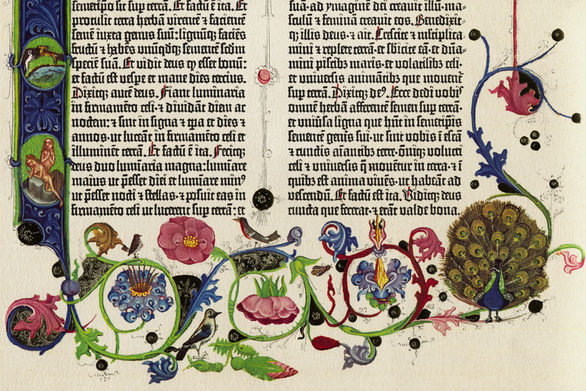 semetipso sit sup terrā. Et factū ē ita. Et
protulit terra herbā virentē & facientē
semē iuxta genus suū: lignūq; faciēs
fructū & habēs unūqdq; sementē scdm
speciē suā. Et vidit deus q esset bonū:
et factū est vespe et mane dies tercius.
Dixitq; autē deus. Fiant luminaria
in firmamēto celi· & dividāt diem ac
noctem: & sint in signa & tpa et dies &
annos· ut luceāt in firmamēto celi et
illuminēt terrā. Et factū ē ita. Fecitq;
deus duo luminaria magna: lumiare
maius ut pesset diei et lumiare minꝰ
ut pesset nocti & stellas· & posuit eas in
firmamēto celi ut lucerent sup terrā: et
suā· ad ymaginē dei creavit illū· ma-
sculū & feminā creavit eos. Benedixit-
q; illis deus· et ait. Crescite & mltiplica-
mini & replete terrā· et sbicite eā· et dña-
mini piscibꝰ maris· et volatilibꝰ celi·
et universis animātibꝰ que moventur
sup terrā. Dixitq; deꝰ. Ecce dedi vobis
omnē herbā afferentē semen sup terrā·
et univsa ligna que hñt in semetipis
semētē genis sui· ut sint vobis ī escā
& cunctis aīantibꝰ terre· oīniq; volucri
celi & universis q moventur in terra· & ī
quibꝰ est anima vivēs· ut habeāt ad
vescendū. Et factū est ita. Viditq; deus
cuncta que fecerat· & erāt valde bona.